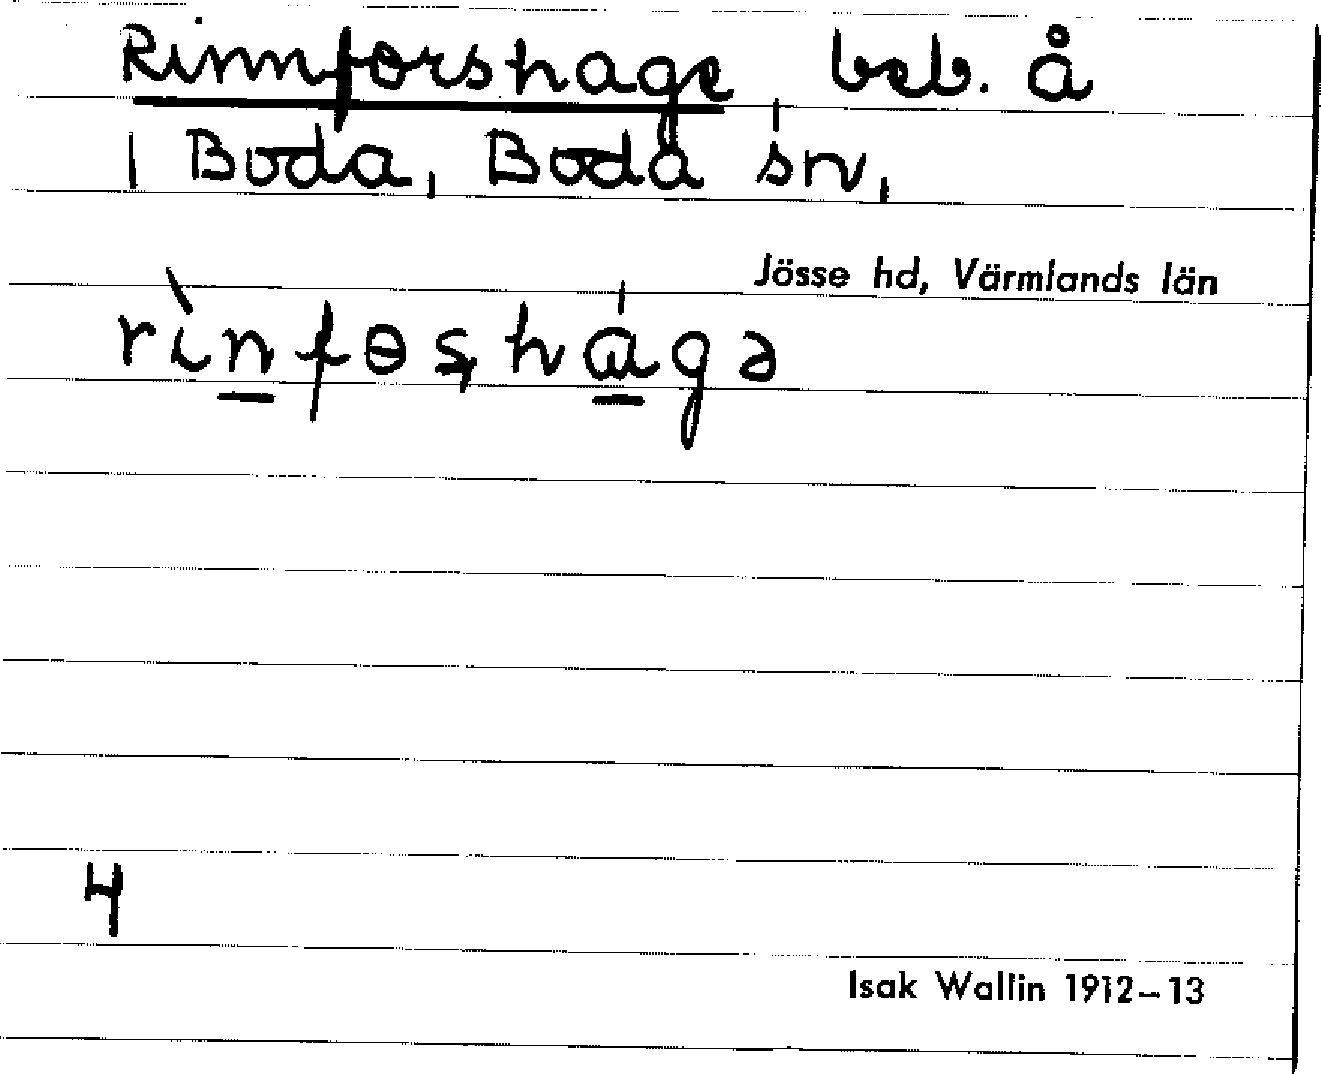 Rinnforshage, beb. å
1 Boda, Boda sn,
Jösse hd, Värmlands län
rìn̲fɵşhá̲gə
4
Isak Wallin 1912–13